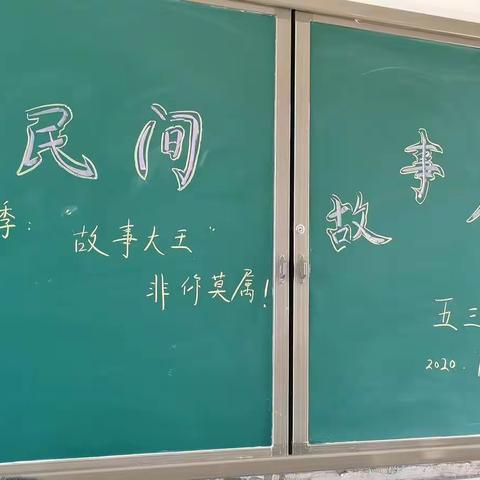 民间
故事
季：“故事大王”
非你莫属！
五三
2020.